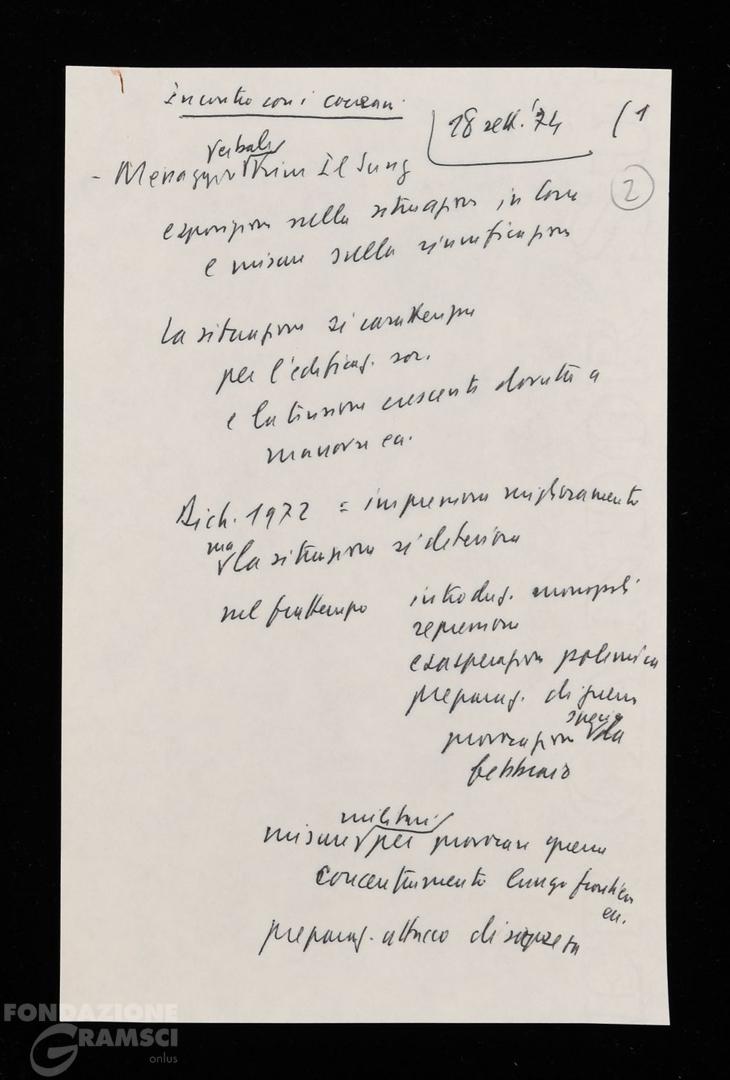 Incontro con i coreani
18 sett. '74 (1
verbale
- Messaggio Kim Il Sung
2
esposizione sulla situazione in Corea
e misure sulla riunificazione
La situazione si caratterizza
per l'edificaz. soc.
e la tensione crescente dovuta a
manovre ecc.
Dich. 1972 = impressione miglioramento
ma la situazione si deteriora
nel frattempo introduz. monopoli
repressione
esasperazione polemica
preparaz. di guerra
specie
provocazione da
febbraio
militari
misure per provocare guerra
concentramento lungo frontiera
ecc.
preparaz. attacco di sorpresa
FONDAZIONE
GRAMSCI
onlus